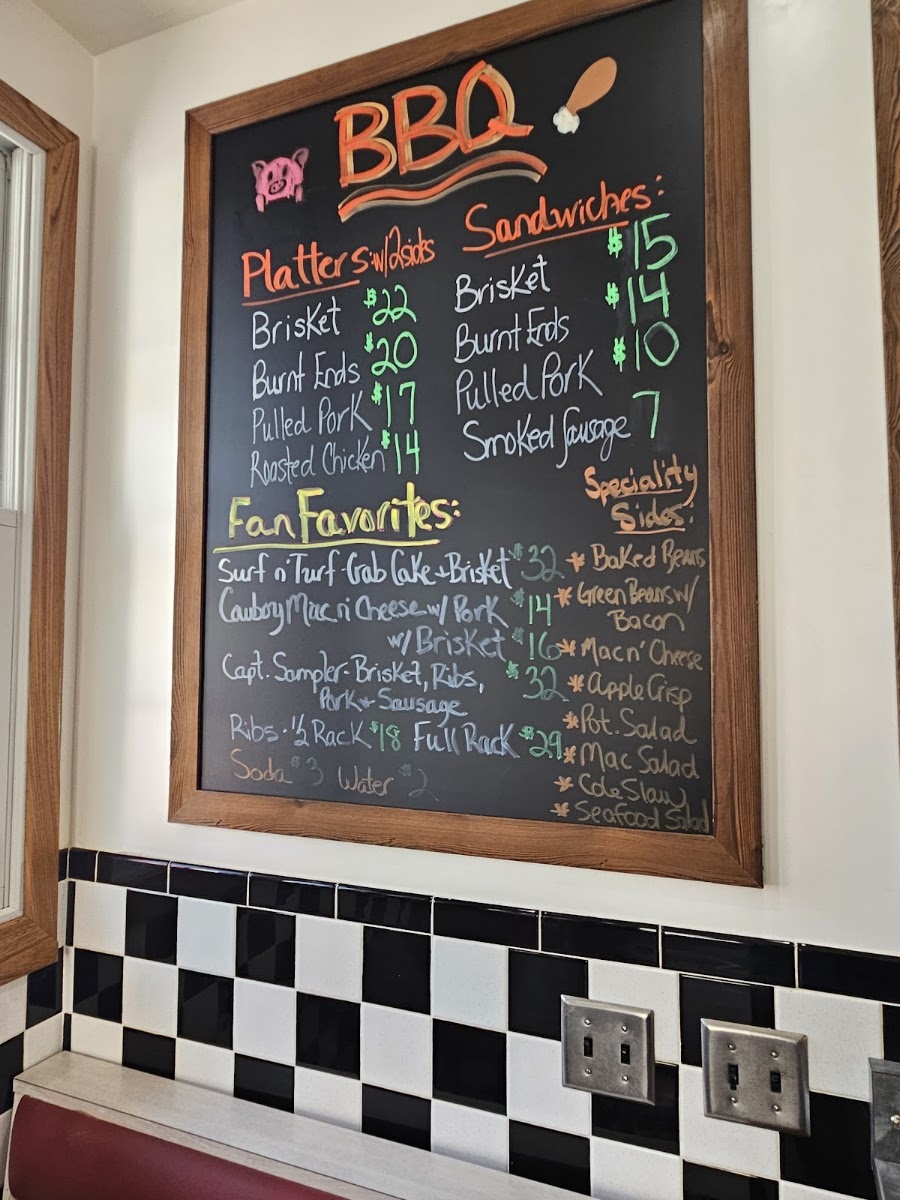 BBQ
Platters: w/2sides
Brisket $22
Burnt Ends $20
Pulled Pork $17
Roasted Chicken $14
Sandwiches:
Brisket $15
Burnt Ends $14
Pulled Pork $10
Smoked Sausage 7
Fan Favorites:
Surf n' Turf-Crab Cake + Brisket $32
Cowboy Mac n' Cheese w/ Pork $14
w/ Brisket $16
Capt. Sampler-Brisket, Ribs, $32
Pork + Sausage
Ribs - 1/2 Rack $18 Full Rack $29
Soda $3 Water $2
Speciality
Sides:
* Baked Beans
* Green Beans w/
Bacon
* Mac n' Cheese
* Apple Crisp
* Pot. Salad
* Mac Salad
* Cole Slaw
* Seafood Salad